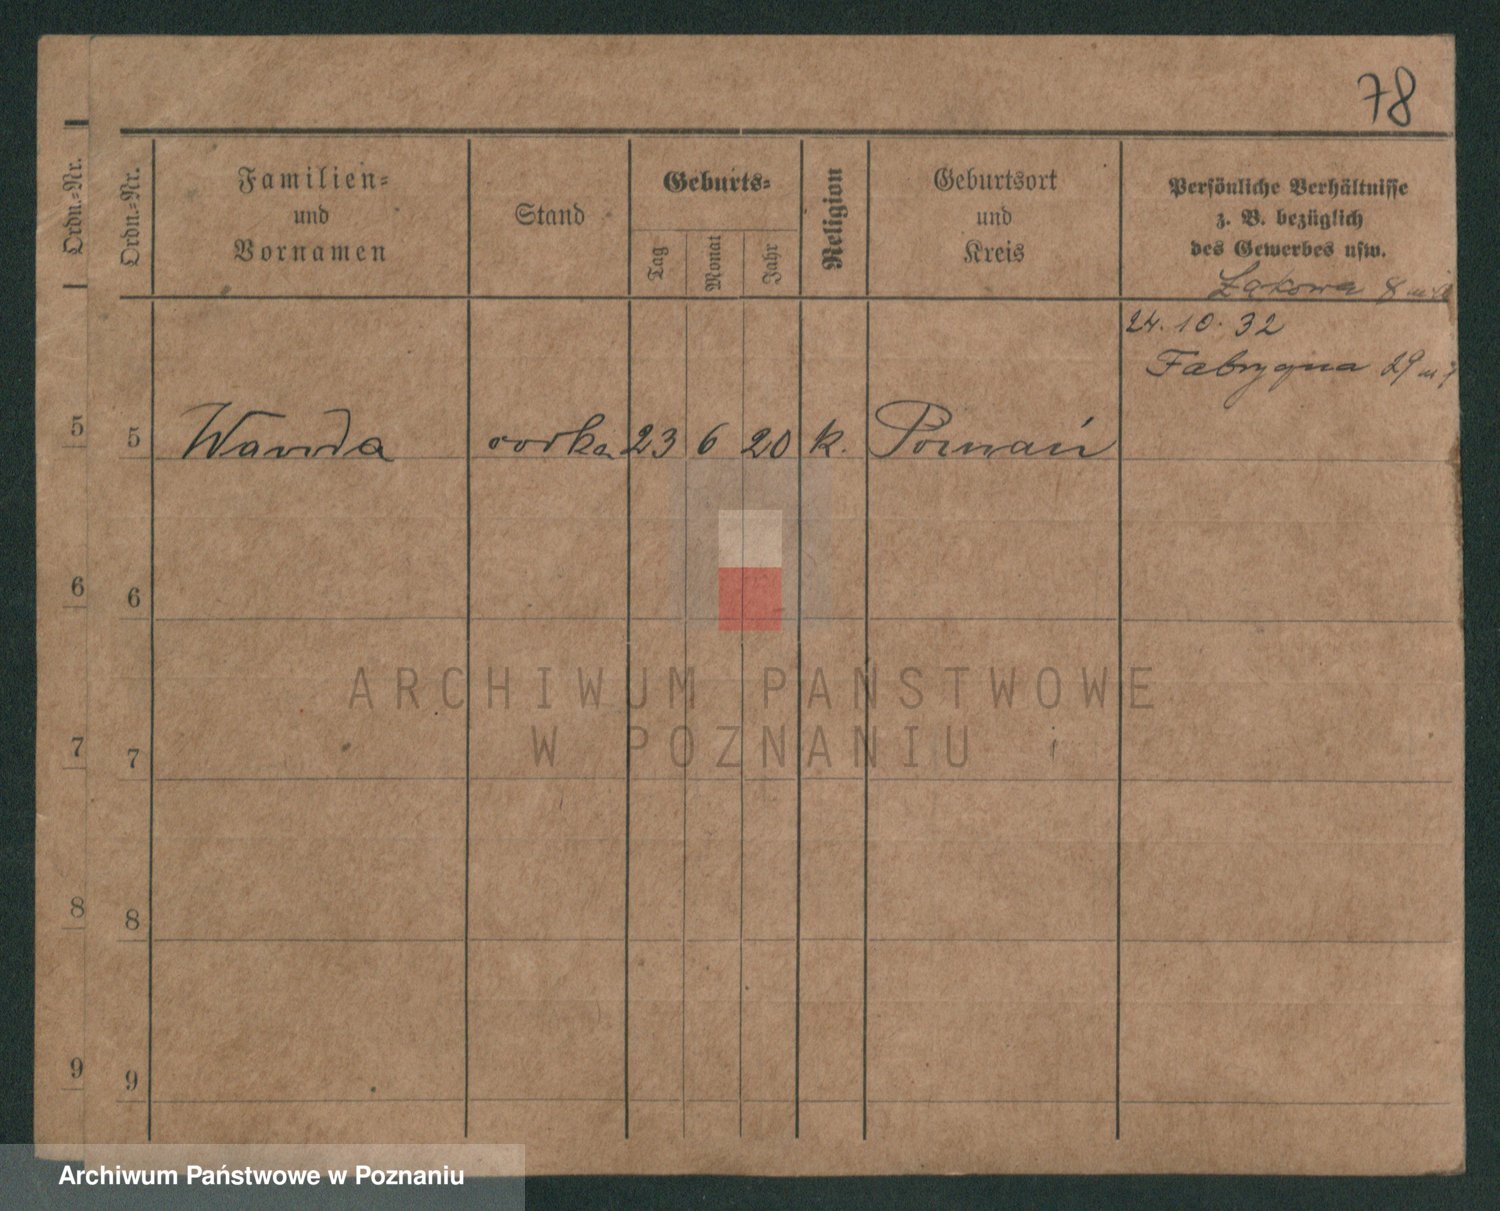 78
Ordn.-Nr.
Ordn.-Nr.
Familien-
und
Vornamen
Stand
Geburts-
Tag
Monat
Jahr
Religion
Geburtsort
und
Kreis
Persönliche Verhältnisse
z. B. bezüglich
des Gewerbes usw.
Łąkowa 8
24. 10. 32
Fabryczna 29 m
5
5 Wanda corka 23 6 20 k. Poznań
6
6
7
7
8
8
9
9
ARCHIWUM PAŃSTWOWE
W POZNANIU
Archiwum Państwowe w Poznaniu